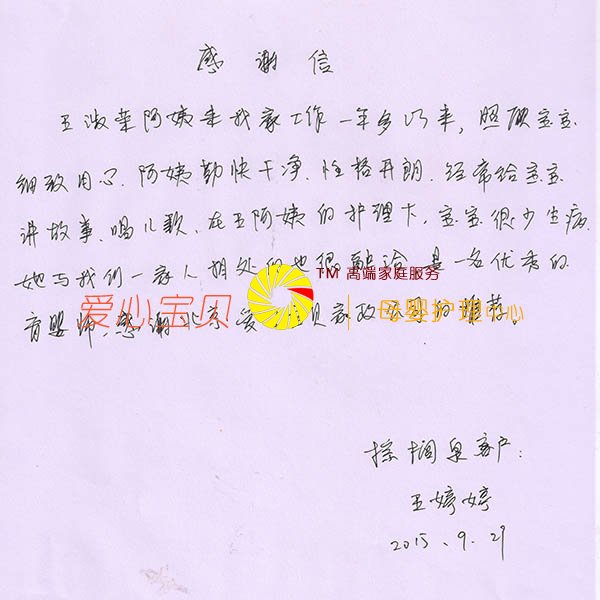 感谢信
王淑荣阿姨来我家工作一年多以来，照顾宝宝
细致用心，阿姨勤快干净，性格开朗，经常给宝宝
讲故事、唱儿歌，在王阿姨的护理下，宝宝很少生病，
她与我们一家人相处的也很融洽，是一名优秀的
TM 高端家庭服务
爱心宝贝 | 母婴护理中心
育婴师，感谢北京爱心宝贝家政公司的推荐。
客户：
王婷婷
2015、9.29